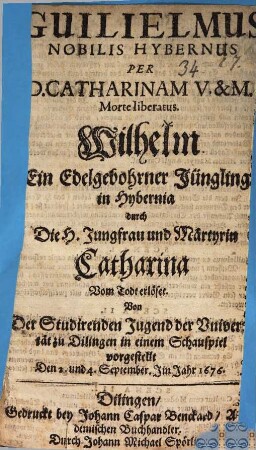 GUILIELMUS
NOBILIS HYBERNUS
PER
34
D. CATHARINAM V. & M.
Morte liberatus.
Wilhelm
Ein Edelgebohrner Jüngling
in Hybernia
durch
Die H. Jungfrau und Märtyrin
Catharina
Vom Todt erlöset.
Von
Der Studirenden Jugend der Univer-
tät zu Dilingen in einem Schauspiel
vorgestellt
Den 2. und 4. September, Im Jahr 1676.
Dilingen/
Gedruckt bey Johann Caspar Benckard/ A-
demischen Buchhandler,
Durch Johann Michael Spörl